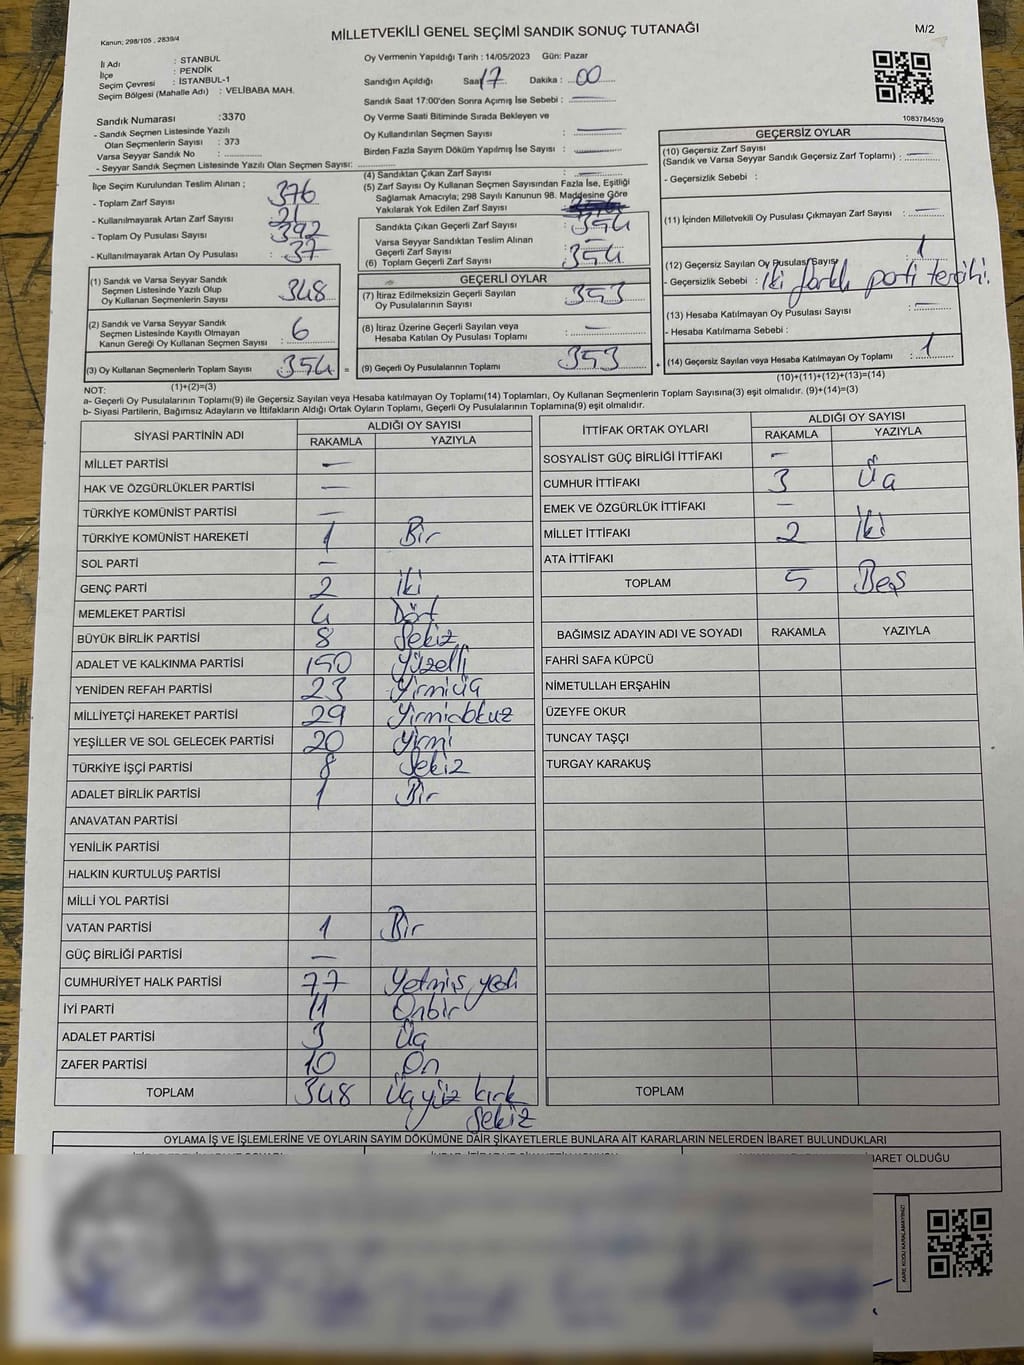 MİLLETVEKİLİ GENEL SEÇİMİ SANDIK SONUÇ TUTANAĞI
M/2
Kanun; 298/105 , 2839/4
İl Adı : STANBUL
İlçe : PENDİK
Seçim Çevresi : İSTANBUL-1
Seçim Bölgesi (Mahalle Adı) : VELİBABA MAH.
Sandık Numarası :3370
- Sandık Seçmen Listesinde Yazılı
Olan Seçmenlerin Sayısı : 373
Varsa Seyyar Sandık No :
- Seyyar Sandık Seçmen Listesinde Yazılı Olan Seçmen Sayısı:
Oy Vermenin Yapıldığı Tarih : 14/05/2023 Gün: Pazar
Sandığın Açıldığı Saat 17 Dakika : 00
Sandık Saat 17:00'den Sonra Açımış İse Sebebi : —
Oy Verme Saati Bitiminde Sırada Bekleyen ve
Oy Kullandırılan Seçmen Sayısı : —
Birden Fazla Sayım Döküm Yapılmış İse Sayısı : —
1083784539
İlçe Seçim Kurulundan Teslim Alınan ;
- Toplam Zarf Sayısı : 376
- Kullanılmayarak Artan Zarf Sayısı : 21
- Toplam Oy Pusulası Sayısı : 392
- Kullanılmayarak Artan Oy Pusulası : 37
(1) Sandık ve Varsa Seyyar Sandık
Seçmen Listesinde Yazılı Olup
Oy Kullanan Seçmenlerin Sayısı : 348
(2) Sandık ve Varsa Seyyar Sandık
Seçmen Listesinde Kayıtlı Olmayan
Kanun Gereği Oy Kullanan Seçmen Sayısı : 6
(3) Oy Kullanan Seçmenlerin Toplam Sayısı : 354 =
(4) Sandıktan Çıkan Zarf Sayısı : —
(5) Zarf Sayısı Oy Kullanan Seçmen Sayısından Fazla İse, Eşitliği
Sağlamak Amacıyla; 298 Sayılı Kanunun 98. Maddesine Göre
Yakılarak Yok Edilen Zarf Sayısı :
Sandıkta Çıkan Geçerli Zarf Sayısı : 354
Varsa Seyyar Sandıktan Teslim Alınan
Geçerli Zarf Sayısı : —
(6) Toplam Geçerli Zarf Sayısı : 354
GEÇERLİ OYLAR
(7) İtiraz Edilmeksizin Geçerli Sayılan
Oy Pusulalarının Sayısı : 353
(8) İtiraz Üzerine Geçerli Sayılan veya
Hesaba Katılan Oy Pusulası Toplamı : —
(9) Geçerli Oy Pusulalarının Toplamı : 353 +
GEÇERSİZ OYLAR
(10) Geçersiz Zarf Sayısı
(Sandık ve Varsa Seyyar Sandık Geçersiz Zarf Toplamı) : —
- Geçersizlik Sebebi :
(11) İçinden Milletvekili Oy Pusulası Çıkmayan Zarf Sayısı : —
(12) Geçersiz Sayılan Oy Pusulası Sayısı : 1
- Geçersizlik Sebebi : İki farklı parti tercihi.
(13) Hesaba Katılmayan Oy Pusulası Sayısı : —
- Hesaba Katılmama Sebebi :
(14) Geçersiz Sayılan veya Hesaba Katılmayan Oy Toplamı : 1
NOT: (1)+(2)=(3) (10)+(11)+(12)+(13)=(14)
a- Geçerli Oy Pusulalarının Toplamı(9) ile Geçersiz Sayılan veya Hesaba katılmayan Oy Toplamı(14) Toplamları, Oy Kullanan Seçmenlerin Toplam Sayısına(3) eşit olmalıdır. (9)+(14)=(3)
b- Siyasi Partilerin, Bağımsız Adayların ve İttifakların Aldığı Ortak Oyların Toplamı, Geçerli Oy Pusulalarının Toplamına(9) eşit olmalıdır.
SİYASİ PARTİNİN ADI ALDIĞI OY SAYISI
RAKAMLA YAZIYLA
MİLLET PARTİSİ —
HAK VE ÖZGÜRLÜKLER PARTİSİ —
TÜRKİYE KOMÜNİST PARTİSİ —
TÜRKİYE KOMÜNİST HAREKETİ 1 Bir
SOL PARTİ —
GENÇ PARTİ 2 İki
MEMLEKET PARTİSİ 4 Dört
BÜYÜK BİRLİK PARTİSİ 8 Sekiz
ADALET VE KALKINMA PARTİSİ 150 Yüzelli
YENİDEN REFAH PARTİSİ 23 Yirmiüç
MİLLİYETÇİ HAREKET PARTİSİ 29 Yirmidokuz
YEŞİLLER VE SOL GELECEK PARTİSİ 20 Yirmi
TÜRKİYE İŞÇİ PARTİSİ 8 Sekiz
ADALET BİRLİK PARTİSİ 1 Bir
ANAVATAN PARTİSİ
YENİLİK PARTİSİ
HALKIN KURTULUŞ PARTİSİ
MİLLİ YOL PARTİSİ
VATAN PARTİSİ 1 Bir
GÜÇ BİRLİĞİ PARTİSİ —
CUMHURİYET HALK PARTİSİ 77 Yetmiş yedi
İYİ PARTİ 11 Onbir
ADALET PARTİSİ 3 Üç
ZAFER PARTİSİ 10 On
TOPLAM 348 Üçyüz kırk
sekiz
İTTİFAK ORTAK OYLARI ALDIĞI OY SAYISI
RAKAMLA YAZIYLA
SOSYALİST GÜÇ BİRLİĞİ İTTİFAKI —
CUMHUR İTTİFAKI 3 Üç
EMEK VE ÖZGÜRLÜK İTTİFAKI —
MİLLET İTTİFAKI 2 İki
ATA İTTİFAKI
TOPLAM 5 Beş
BAĞIMSIZ ADAYIN ADI VE SOYADI RAKAMLA YAZIYLA
FAHRİ SAFA KÜPCÜ
NİMETULLAH ERŞAHİN
ÜZEYFE OKUR
TUNCAY TAŞÇI
TURGAY KARAKUŞ
TOPLAM
OYLAMA İŞ VE İŞLEMLERİNE VE OYLARIN SAYIM DÖKÜMÜNE DAİR ŞİKAYETLERLE BUNLARA AİT KARARLARIN NELERDEN İBARET BULUNDUKLARI
İBARET OLDUĞU
KARE KODU KARALAMAYINIZ!